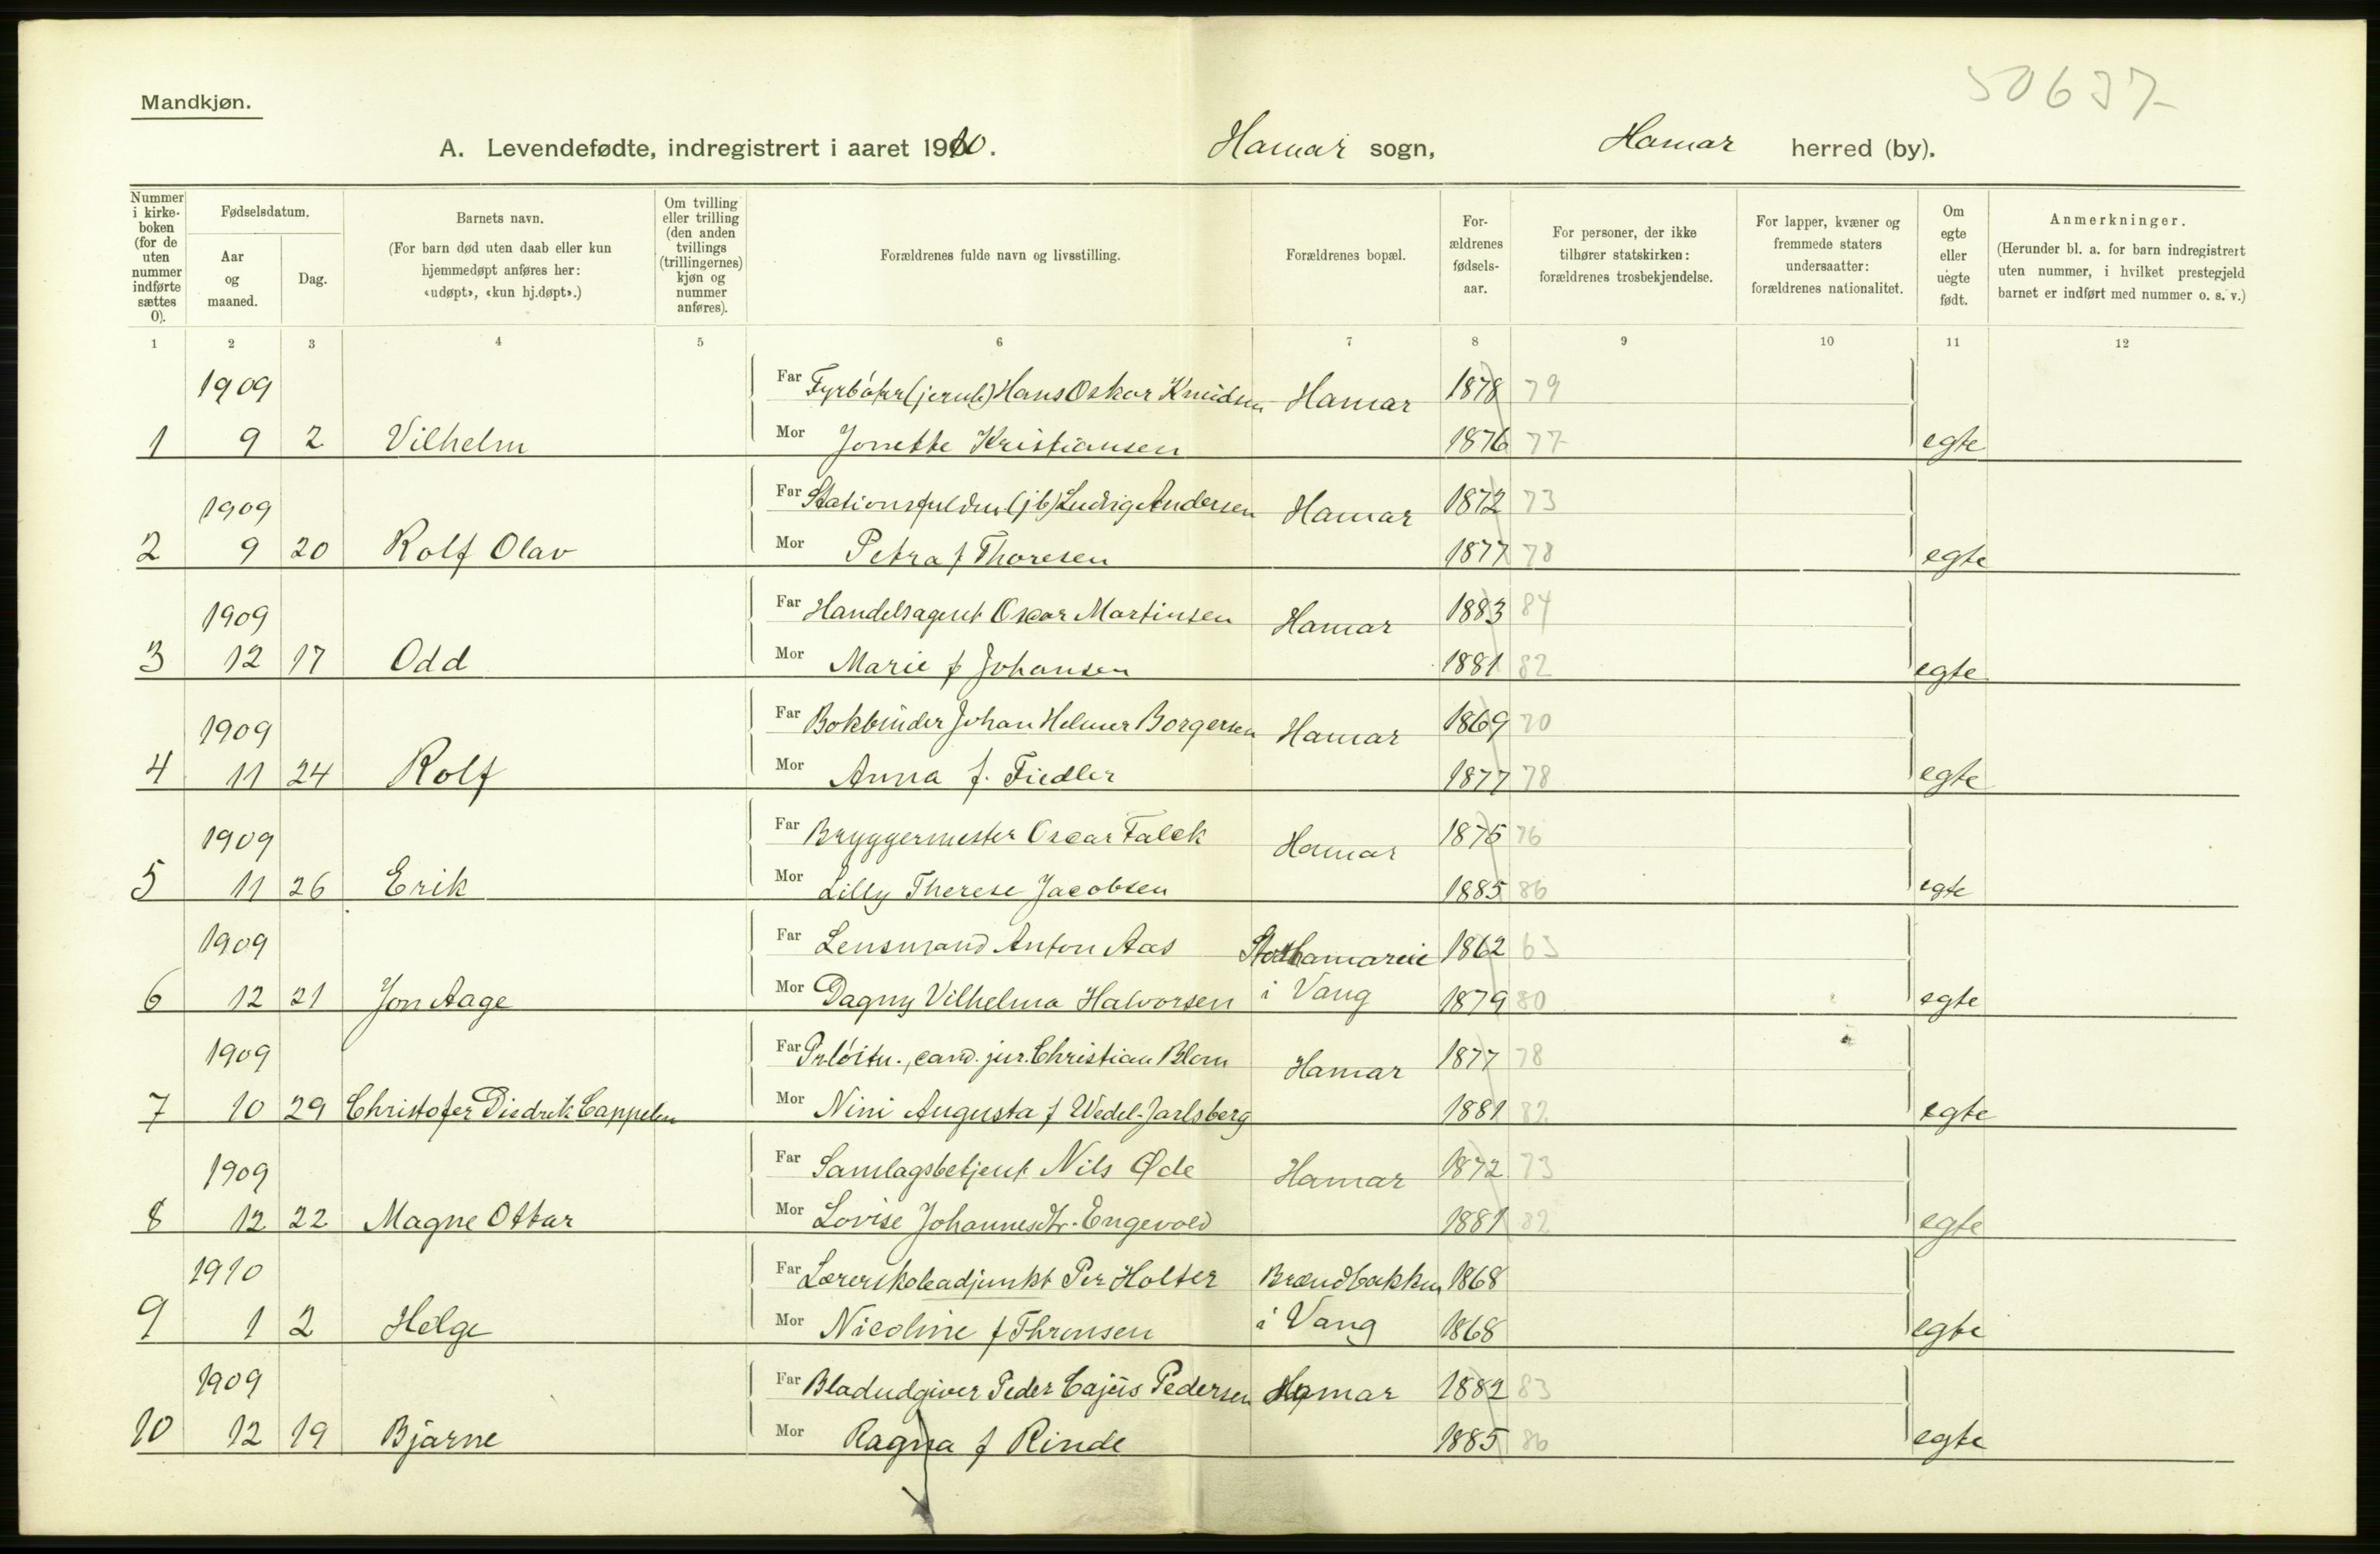 50637
Mandkjøn.
A. Levendefødte, indregistrert i aaret 1910. Hamar sogn, Hamar herred (by).
Nummer i kirke-boken (for de uten nummer indførte sættes 0).
Fødselsdatum.
Aar og maaned.
Dag.
Barnets navn.
(For barn død uten daab eller kun hjemmedøpt anføres her: «udøpt», «kun hj.døpt».)
Om tvilling eller trilling (den anden tvillings (trillingernes) kjøn og nummer anføres).
Forældrenes fulde navn og livsstilling.
Forældrenes bopæl.
For-ældrenes fødsels-aar.
For personer, der ikke tilhører statskirken: forældrenes trosbekjendelse.
For lapper, kvæner og fremmede staters undersaatter: forældrenes nationalitet.
Om egte eller uegte født.
Anmerkninger.
(Herunder bl. a. for barn indregistrert uten nummer, i hvilket prestegjeld barnet er indført med nummer o. s. v.)
1 2 3 4 5 6 7 8 9 10 11 12
1909 Far Fyrbøter (jernb) Hans Oskar Knudsen Hamar 1878 79
1 9 2 Vilhelm Mor Jonette Kristiansen 1876 77 egte
1909 Far (jb) Ludvig Andersen Hamar 1872 73
2 9 20 Rolf Olav Mor Petra f Thoresen 1877 78 egte
1909 Far Handelsagent Oscar Martinsen Hamar 1883 84
3 12 17 Odd Mor Marie f Johansen 1881 82 egte
1909 Far Bokbinder Johan Helmer Borgersen Hamar 1869 70
4 11 24 Rolf Mor Anna f. Fiedler 1877 78 egte
1909 Far Bryggermester Oscar Falck Hamar 1875 76
5 11 26 Erik Mor Lilly Therese Jacobsen 1885 86 egte
1909 Far Lensmand Anton Aas Storhamareie 1862 63
6 12 21 Jon Aage Mor Dagny Vilhelma Halvorsen i Vang 1879 80 egte
1909 Far Pr.løitn., cand. jur. Christian Blom Hamar 1877 78
7 10 29 Christofer Diedrik Cappelen Mor Nini Augusta f Wedel-Jarlsberg 1881 82 egte
1909 Far Samlagsbetjent Nils Øde Hamar 1872 73
8 12 22 Magne Ottar Mor Lovise Johannesdtr. Engevold 1881 82 egte
1910 Far Lærerskoleadjunkt Per Holter Brændbakken 1868
9 1 2 Helge Mor Nicoline f Thronsen i Vang 1868 egte
1909 Far Bladudgiver Peder Cajus Pedersen Hamar 1882 83
10 12 19 Bjarne Mor Ragna f Rinde 1885 86 egte